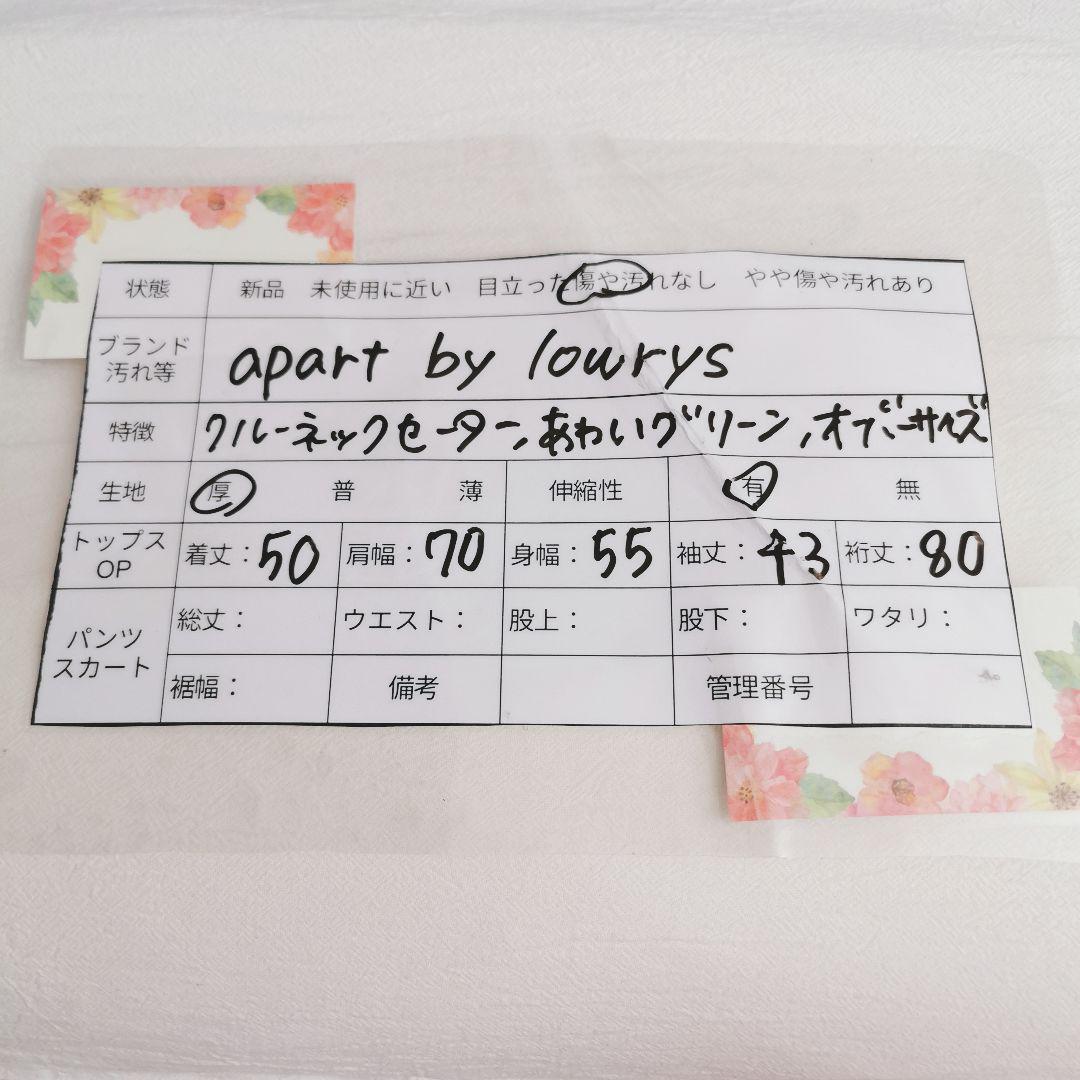 状態 新品 未使用に近い 目立った傷や汚れなし やや傷や汚れあり
ブランド
汚れ等
apart by lowrys
特徴 クルーネックセーター,あわいグリーン,オーバーサイズ
生地 厚 普 薄 伸縮性 有 無
トップス
OP
着丈:50 肩幅:70 身幅:55 袖丈:43 裄丈:80
パンツ
スカート
総丈: ウエスト: 股上: 股下: ワタリ:
裾幅: 備考 管理番号